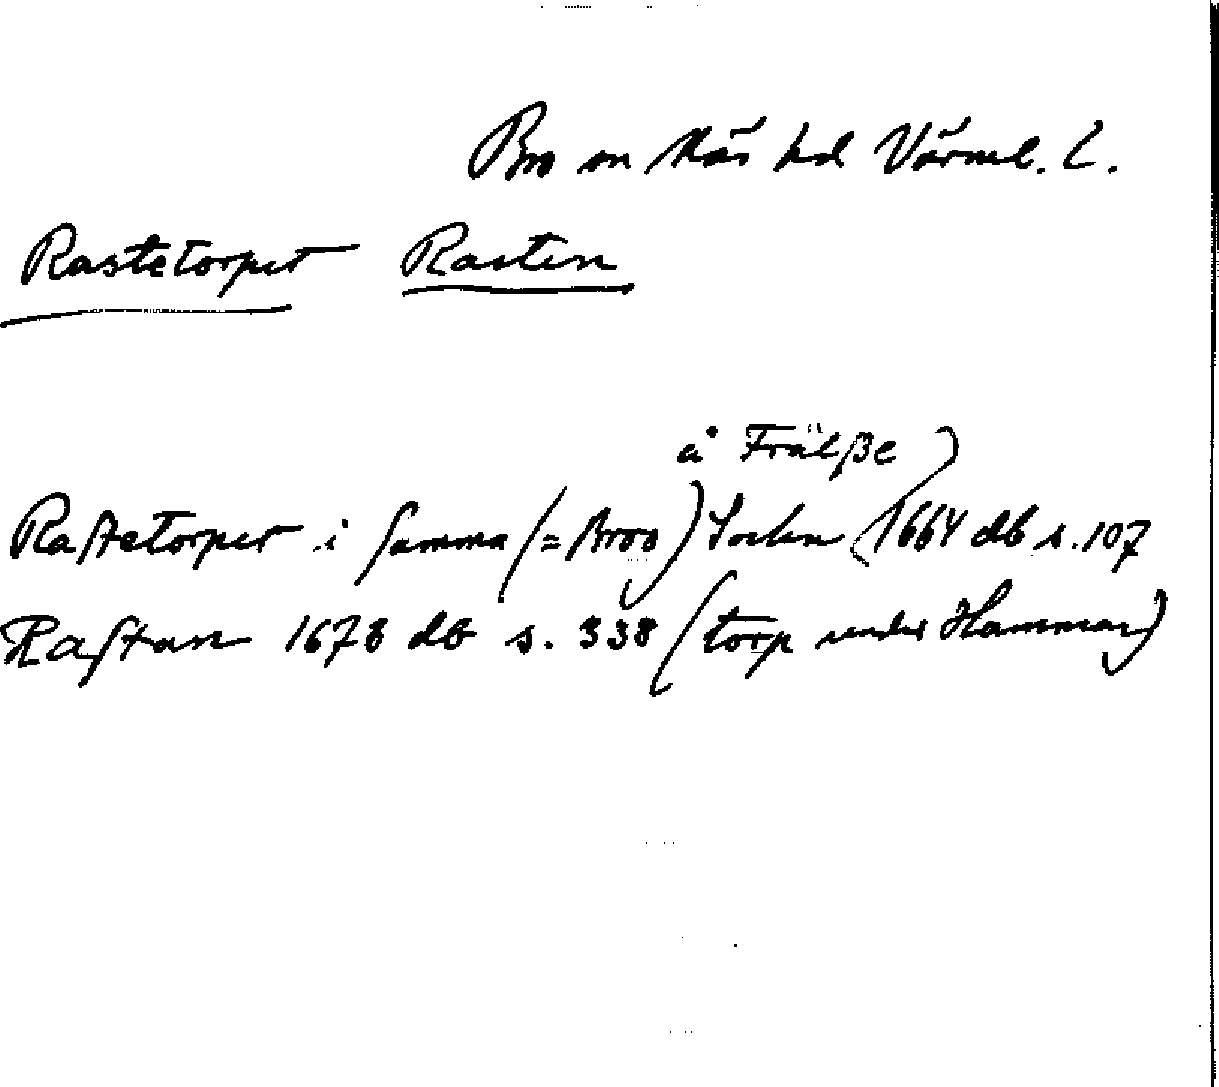 Bro sn Näs hd Värml. L.
Rastetorpet Rasten
å Frälße)
Rastetorpet i samma (= Broo) Socken (1664 db s. 107
Rastan 1678 db s. 338 (torp under Hammar)